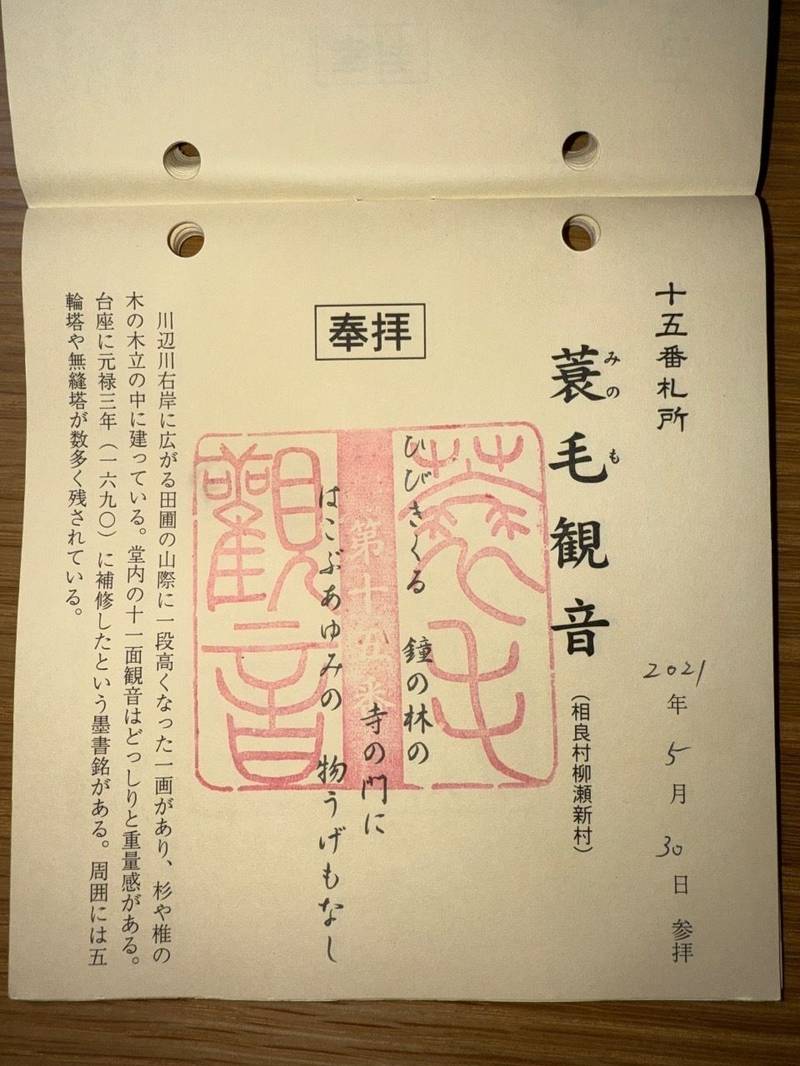 十五番札所
2021年5月30日 参拝
蓑毛観音
みのも
(相良村柳瀬新村)
奉拝
ひびきくる 鐘の林の
寺の門に
はこぶあゆみの 物うげもなし
蓑毛
第十五番
觀音
川辺川右岸に広がる田圃の山際に一段高くなった一画があり、杉や椎の
木の木立の中に建っている。堂内の十一面観音はどっしりと重量感がある。
台座に元禄三年(一六九〇)に補修したという墨書銘がある。周囲には五
輪塔や無縫塔が数多く残されている。